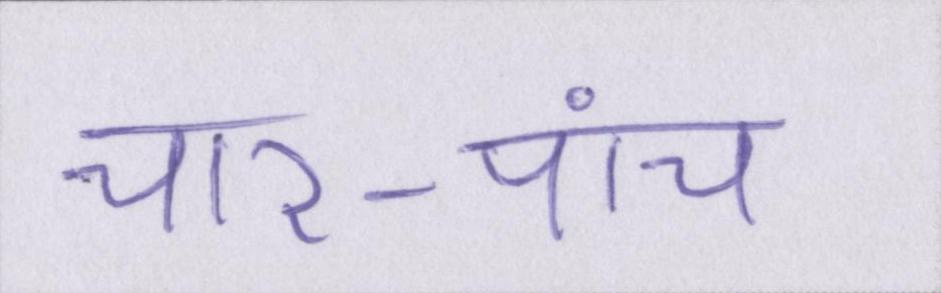 चार-पांच